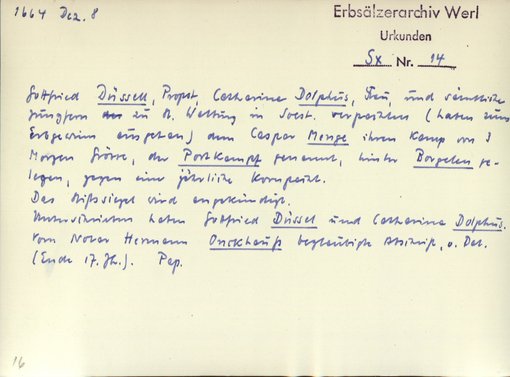 1664 Dez. 8
Erbsälzerarchiv Werl
Urkunden
Sx Nr. 14
Gottfried Düssell, Propst, Catharina Dolphus, Frau, und sämtliche
Jungfern zu St. Walburg in Soest verpachten (haben zum
Erbgewinn ausgetan) dem Caspar Menge ihren Kamp von 3
Morgen Grösse, der Portkampf genannt, hinter Borgelen ge-
legen, gegen eine jährliche Kornpacht.
Das Stiftssiegel wird angekündigt.
Unterschrieben haben Gottfried Düssel und Catharina Dolphus.
Vom Notar Hermann Onckhauß beglaubigte Abschrift, o. Dat.
(Ende 17. Jh.). Pap.
16